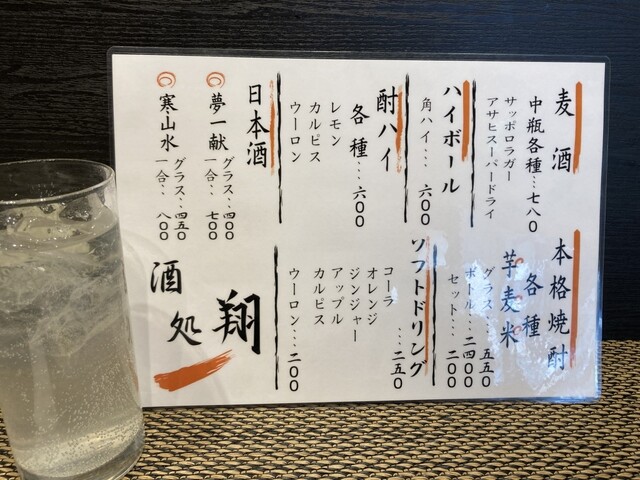 麦酒
中瓶各種…七八〇
サッポロラガー
アサヒスーパードライ
ハイボール
角ハイ…六〇〇
酎ハイ
各種…六〇〇
レモン
カルピス
ウーロン
日本酒
夢一献 グラス‥四〇〇
一合‥七〇〇
寒山水 グラス‥四五〇
一合‥八〇〇
本格焼酎
各種
芋麦米
グラス…五五〇
ボトル…二四〇〇
セット…二〇〇
ソフトドリング
…二五〇
コーラ
オレンジ
ジンジャー
アップル
カルピス
ウーロン…二〇〇
翔
酒処